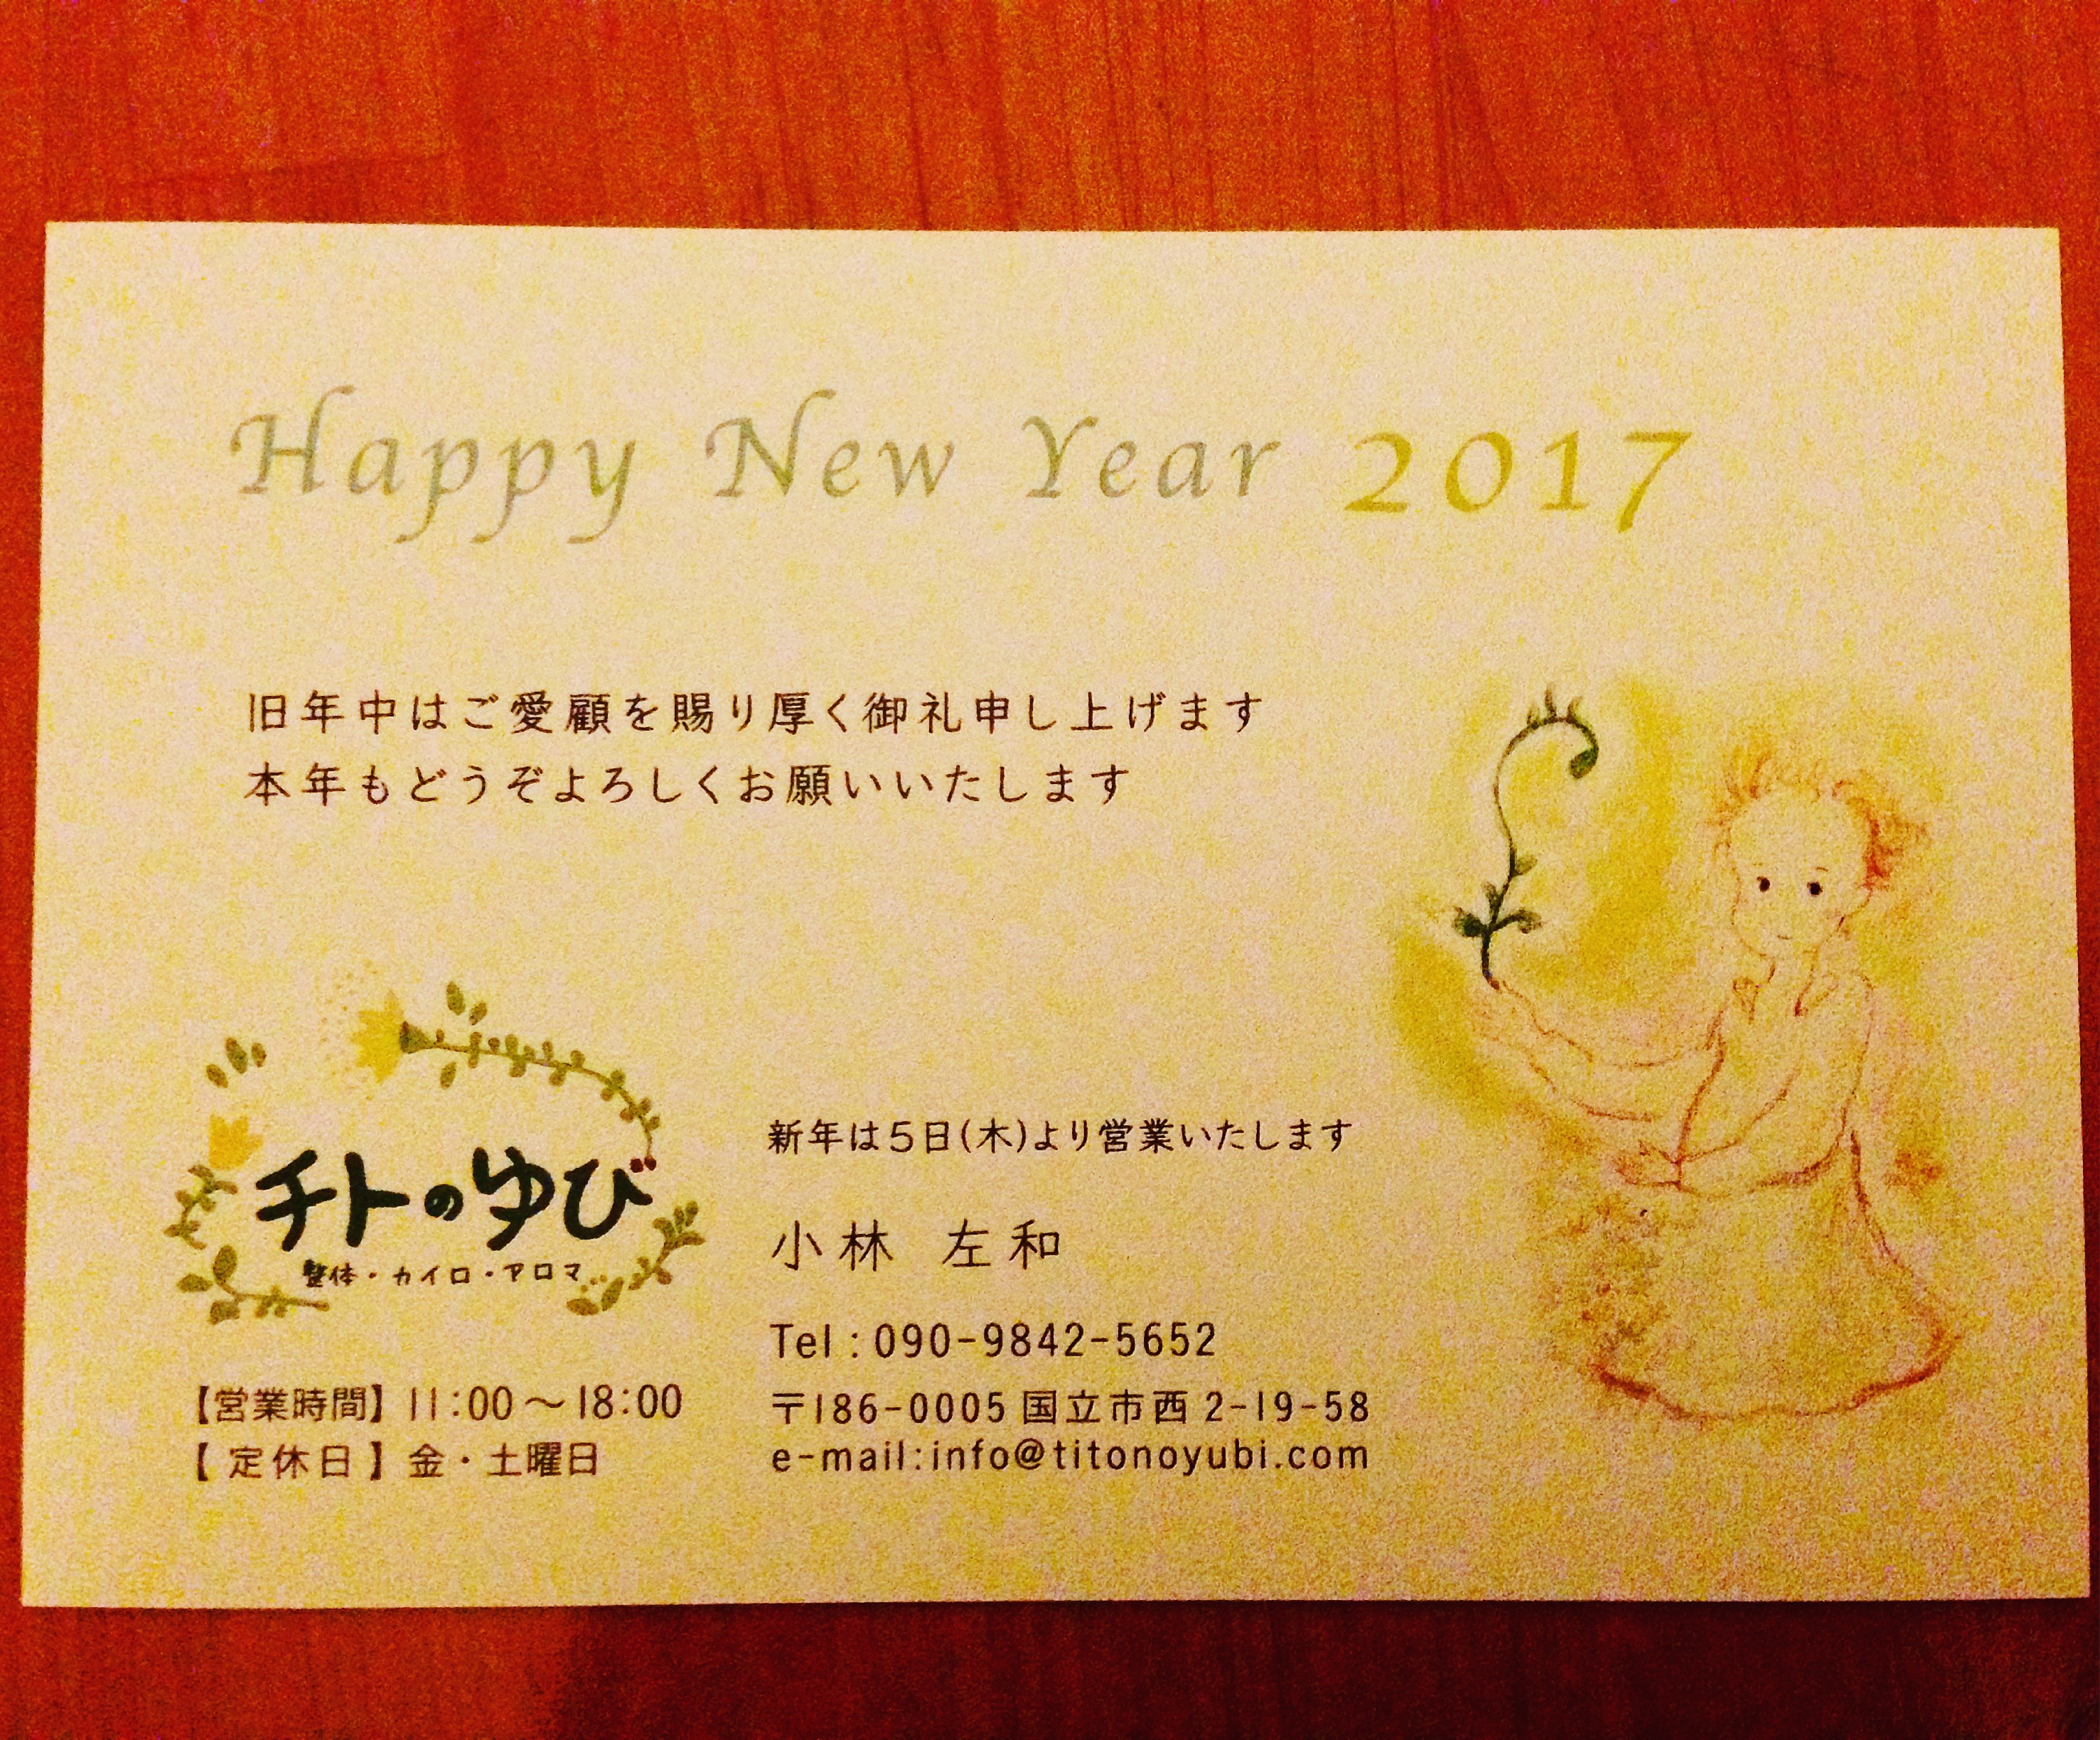 Happy New Year 2017
旧年中はご愛顧を賜り厚く御礼申し上げます
本年もどうぞよろしくお願いいたします
チトのゆび
整体・カイロ・アロマ
【営業時間】11:00～18:00
【 定休日 】金・土曜日
新年は5日(木)より営業いたします
小林 左和
Tel : 090-9842-5652
〒186-0005 国立市西 2-19-58
e-mail:info@titonoyubi.com